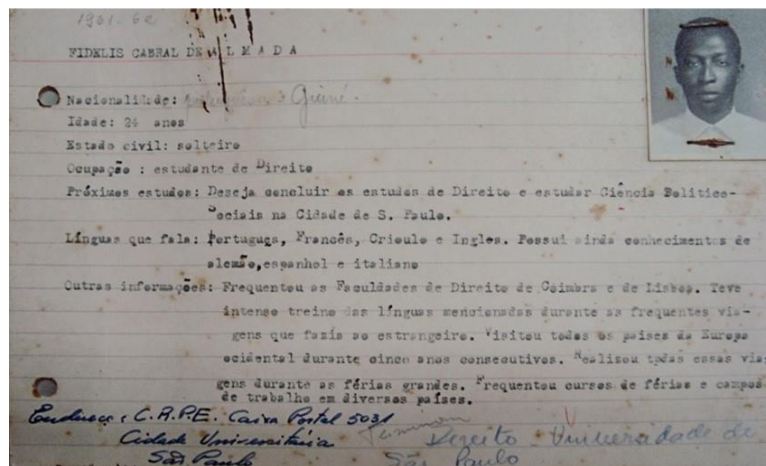 1961-62
FIDELIS CABRAL DE ALMADA
Nacionalidade: Guiné.
Idade: 24 anos
Estado civil: solteiro
Ocupação : estudante de Direito
Próximos estudos: Deseja concluir os estudos de Direito e estudar Ciência Politico-
Sociais na Cidade de S. Paulo.
Línguas que fala: Portugues, Francês, Crioulo e Ingles. Possui ainda conhecimentos de
alemão,espanhol e italiano
Outras informações: Frequentou as Faculdades de Direito de Coimbra e de Lisboa. Teve
intenso treino das línguas mencionadas durante as frequentes via-
gens que fazia ao estrangeiro. Visitou todos os paises da Europa
ocidental durante cinco anos consecutivos. Realizou todas essas via-
gens durante as férias grandes. Frequentou cursos de férias e campos
de trabalho em diversos países.
Endereço: C.R.P.E. Caixa Postal 5031
Cidade Universitária
São Paulo
Direito - Universidade de
São Paulo